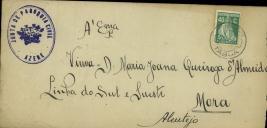 JUNTA DE PAROQUIA CIVIL
AZERE
A' Exma
Viuva D. Maria Joana Queiroga d'Almeida
Linha do Sul e Sueste
Mora
Alentejo